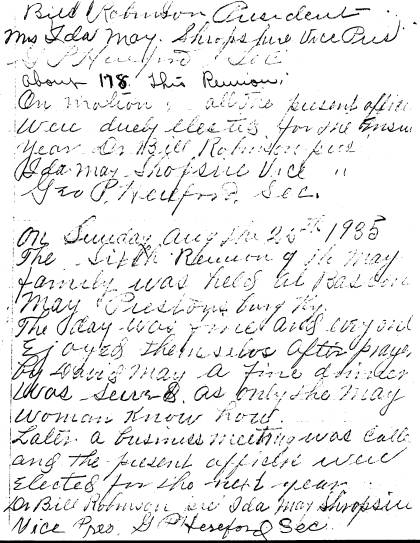 Bill Robinson President
Mrs Ida May Shropshire Vice Pres
G P Hereford Sec
About 178 This Reunion.
On motion, all the present officer
were duely elected for the Ensu
year Dr Bill Robinson pres
Ida May Shopsire Vice "
Geo P. Hereford, Sec.
On Sunday Aug the 25th 1935
The Sixth Reunion of th May
family was held at Bascom
May Prestonsburg Ky.
The day was fine and everyone
Ejoyed themselves After prayer
by David May a fine dinner
was served. as only the May
woman know how.
Later a business meeting was Calle
and the present officers were
Elected for the next year
Dr Bill Robinson Ida May Shropsire
Vice Pres. G P Hereford Sec.